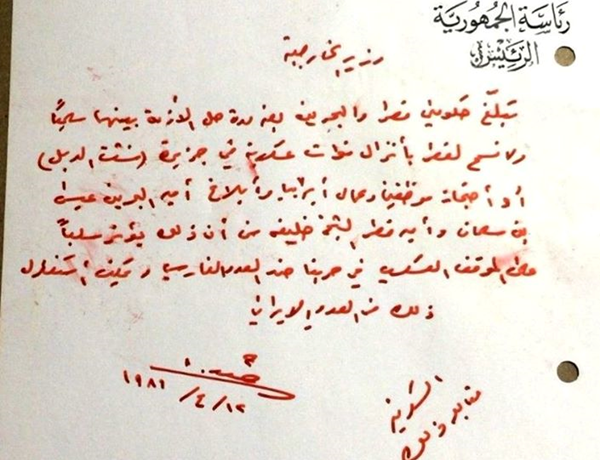 رئاسة الجمهورية
الرئيس
وزير الخارجية
تبلغ حكومتي قطر والبحرين بضرورة حل الأزمة بينهما سلمياً
ولا نسمح لقطر بأنزال قوات عسكرية في جزيرة (فشت الدبل)
أو أحتجاز موظفين وعمال أجانب وأبلاغ أمير البحرين عيسى
بن سلمان وأمير قطر الشيخ خليفه من أن ذلك يؤثر سلباً
على الموقف العسكري في حربنا ضد العدو الفارسي ويمكن استغلال
ذلك من العدو الايراني
١٩٨٦/٤/١٢
السكرتير
متابعة ذلك